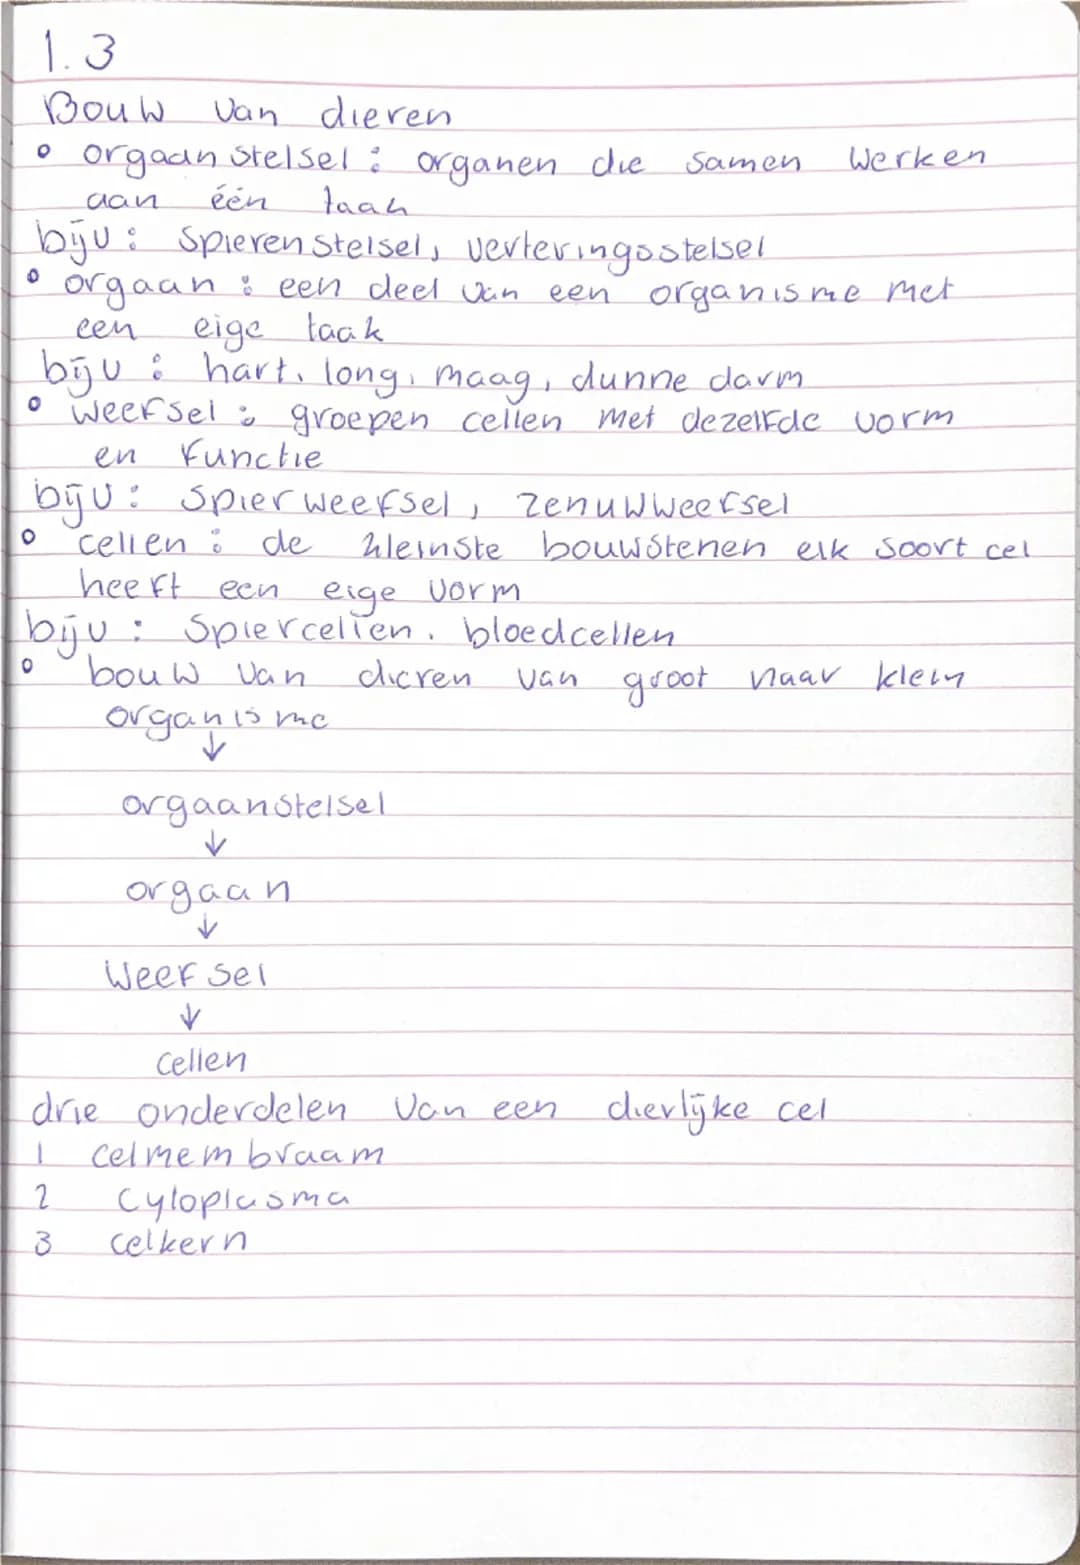 1.3
Bouw van dieren
° orgaanstelsel : organen die samen werken
aan één taak
bijv : Spierenstelsel, verteringsstelsel
° orgaan : een deel van een organisme met
een eige taak
bijv : hart, long, maag, dunne darm
° weefsel : groepen cellen met dezelfde vorm
en functie
bijv : Spierweefsel, zenuwweefsel
° cellen : de kleinste bouwstenen elk soort cel
heeft een eige vorm
bijv : Spiercellen. bloedcellen
° bouw van dieren van groot naar klein
organisme
↓
orgaanstelsel
↓
orgaan
↓
Weefsel
↓
Cellen
drie onderdelen van een dierlijke cel
1 celmembraam
2 Cyloplasma
3 celkern